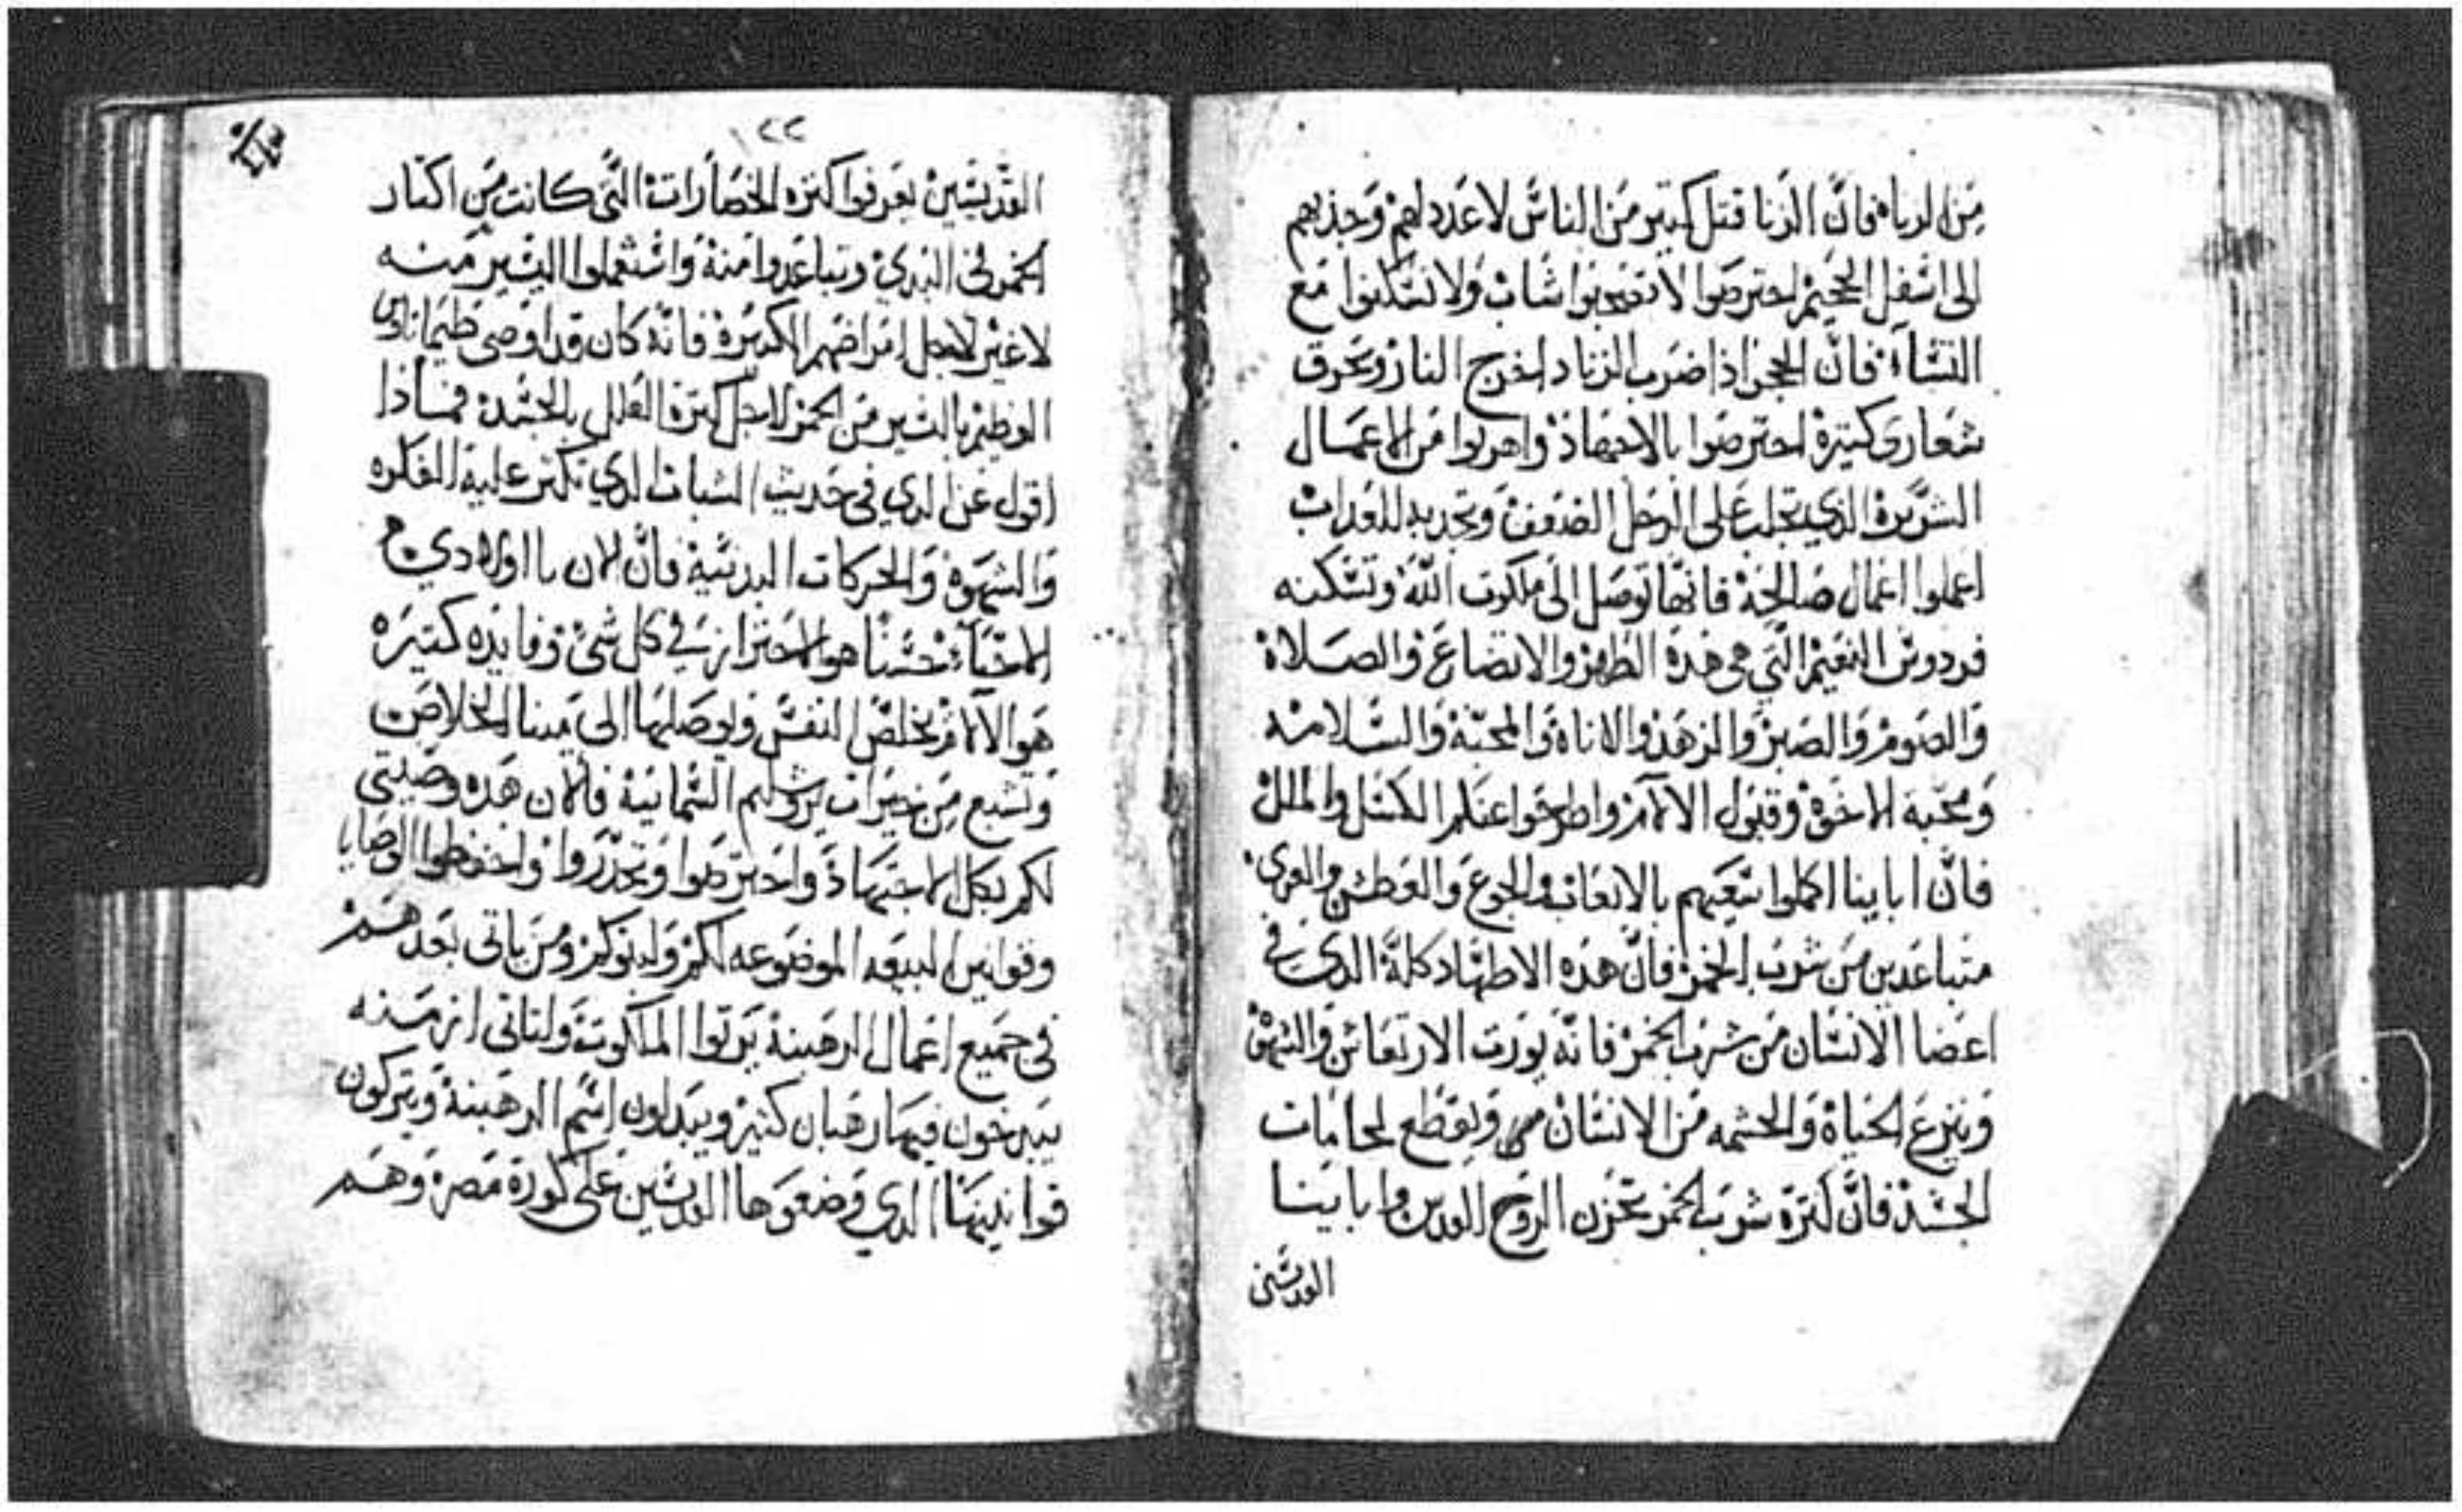 من الزنا فان الزنا قتل كتير من الناس لا عدد لهم وجذبهم
الى اسفل الجحيم احترصوا لا تصحبوا شاب ولا تسكنوا مع
النسآء فان الحجر اذا ضرب الزناد اخرج النار ويحرق
شعارى كتيرة احترصوا بالاجتهاد واهربوا من الاعمال
الشريرة الذي تجلب على الرجل الضعف وتجذبه للعذاب
اعملوا اعمال صالحة فانها توصل الى ملكوت الله وتسكنه
فردوس النعيم التي هي هذه الطهر والاتضاع والصلاة
والصوم والصبر والزهد والاناة والمحبة والسلامه
ومحبة الاخوة وقبول الالام واطرحوا عنكم الكسل والملل
فان اباينا اكملوا سعيهم بالاتعاب والجوع والعطش والعرى
متباعدين من شرب الخمر فان هذه الاضطهاد كلة الذي في
اعضا الانسان من شرب الخمر فانه يورت الارتعاش والشهوة
وينزع الحياة والحشمه من الانسان ويقطع لجامات
الجسد فان كترة شرب الخمر تحزن الروح القدس وابابينا
القديسين
٢٢
القديسين يعرفوا كتره الخصارات التي كانت من اكتار
الخمر في البدي وتباعدوا منة واستعملوا اليسير منه
لاغير لاجل امراضهم الكتيرة فانة كان قد اوصى طيماتاوس
العظيم باليسير من الخمر لاجل كترة العلل بالجسد فماذا
اقول عن الدي في حديث الشباب الدي تكتر علية الفكره
والشهوة والحركات البدنية فان الان يا اولادي
الاحباء حسنا هو الاحتراز في كل شي وفايده كتيره
هو الالام يخلص النفس ويوصلها الى مينا الخلاص
وتشبع من خيرات يروشليم السمائية فالان هده وصيتي
لكم بكل الاجتهاد واحترصوا وتحذروا واحفظوا الوصايا
وقوانين البيعه الموضوعه لكم ولبنوكم ومن ياتى بعدهم
في جميع اعمال الرهبنة يرتوا الملكوت ولتاتى ازمنه
يتبدخون فيها رهبان كتير ويبدلون اسم الرهبنة ويتركون
قوانينها الدي وضعوها القديسين على كورة مصر وهم